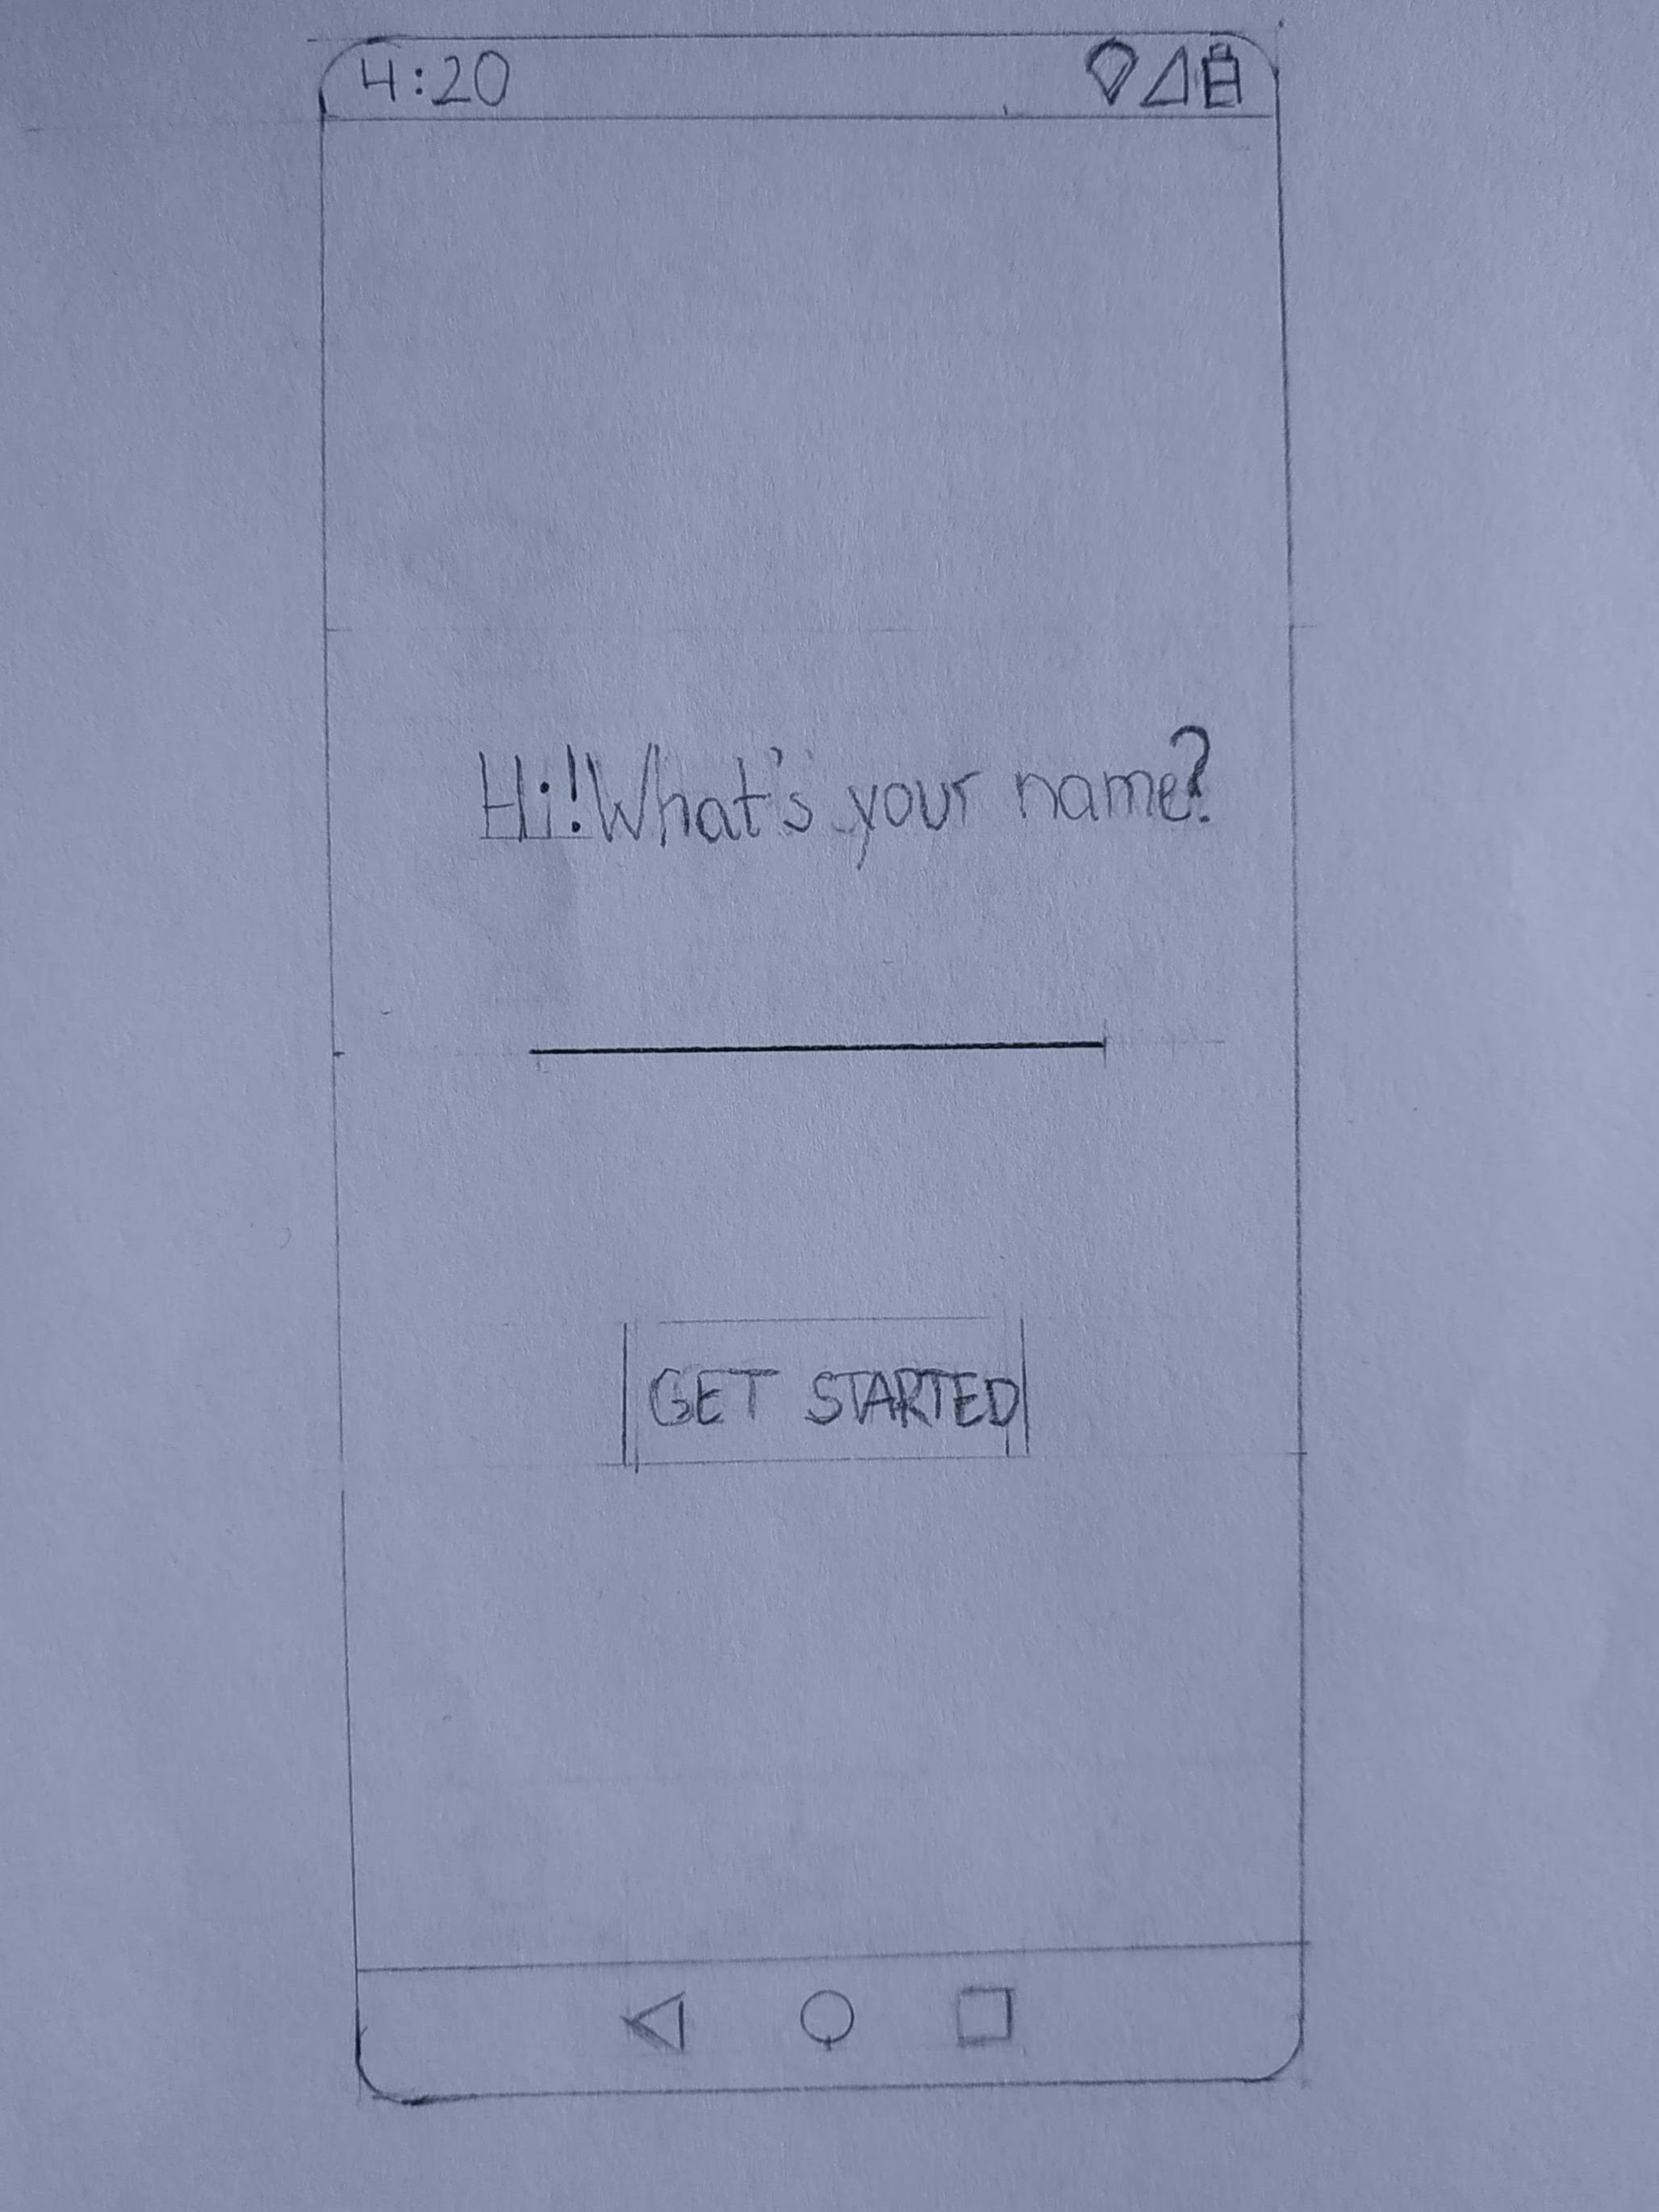 4:20
Hi! What's your name?
GET STARTED